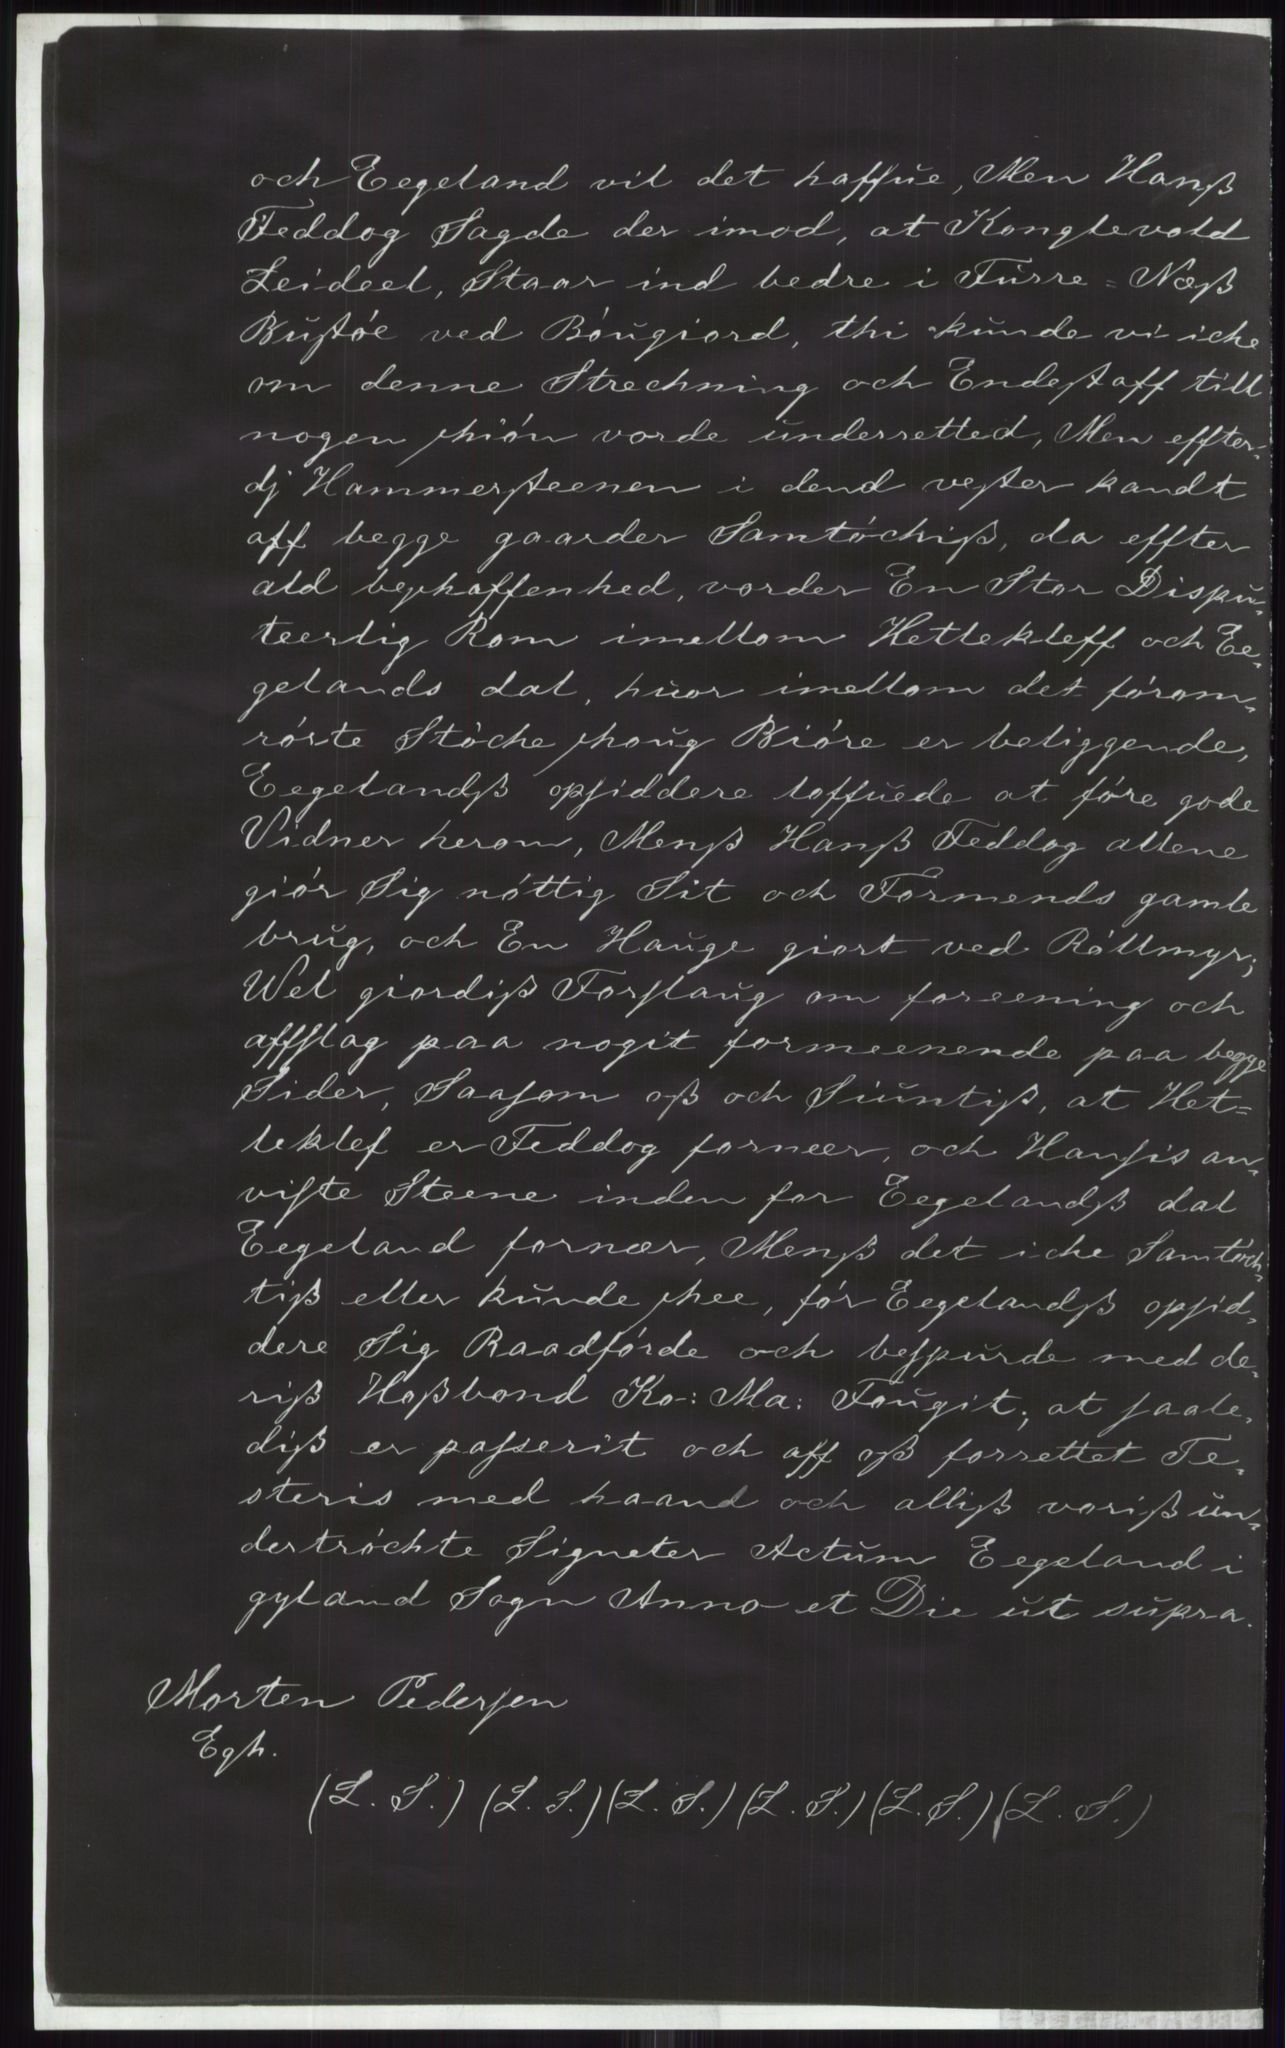 och Eegeland vil det haffue, Men Hanß
Feddog Sagde der imod, at Konglevold
Leideel, Staar ind bedre i Furre = Næß
Bustóe ved Bóugiord, thi kunde vi iche
om denne Strechning och Endestaff till
nogen skión vorde underretted, Men effter-
dj Hammersteenen i dend vester kandt
aff begge gaarder Samtóchiß, da effter
ald beskaffenhed, vorder En Stor Dispu-
teerlig Rom imellom Hetlekleff och Ee-
gelands dal, huor imellom det fórom-
rórte Stóche skoug Bióre er beliggende,
Eegelandß opsiddere loffuede at fóre gode
Vidner herom, Menß Hanß Feddog allene
giór Sig nóttig Sit och Formends gamle
brug, och En Hauge giort ved Róllmyr;
Wel giordiß Forslaug om foreening och
affslag paa nogit formeenende paa begge
Sider, Saasom oß och Siuntiß, at Het=
leklef er Feddog fornær, och Hansis an-
viste Steene inden for Eegelandß dal
Eegeland fornær, Menß det iche Samtóch-
tiß eller kunde skee, fór Eegelandß opsid-
dere Sig Raadfórde och bespurde med de-
riß Hoßbond Ko: Ma: Fougit; at saale-
diß er passerit och aff oß forrettet Te-
steris med haand och alliß voriß un-
dertróchte Signeter Actum Eegeland i
gyland Sogn Anno et Die ut supra.
Morten Pedersen
Egh.
(L. S.) (L. S.) (L. S.) (L. S.) (L. S.) (L. S.)